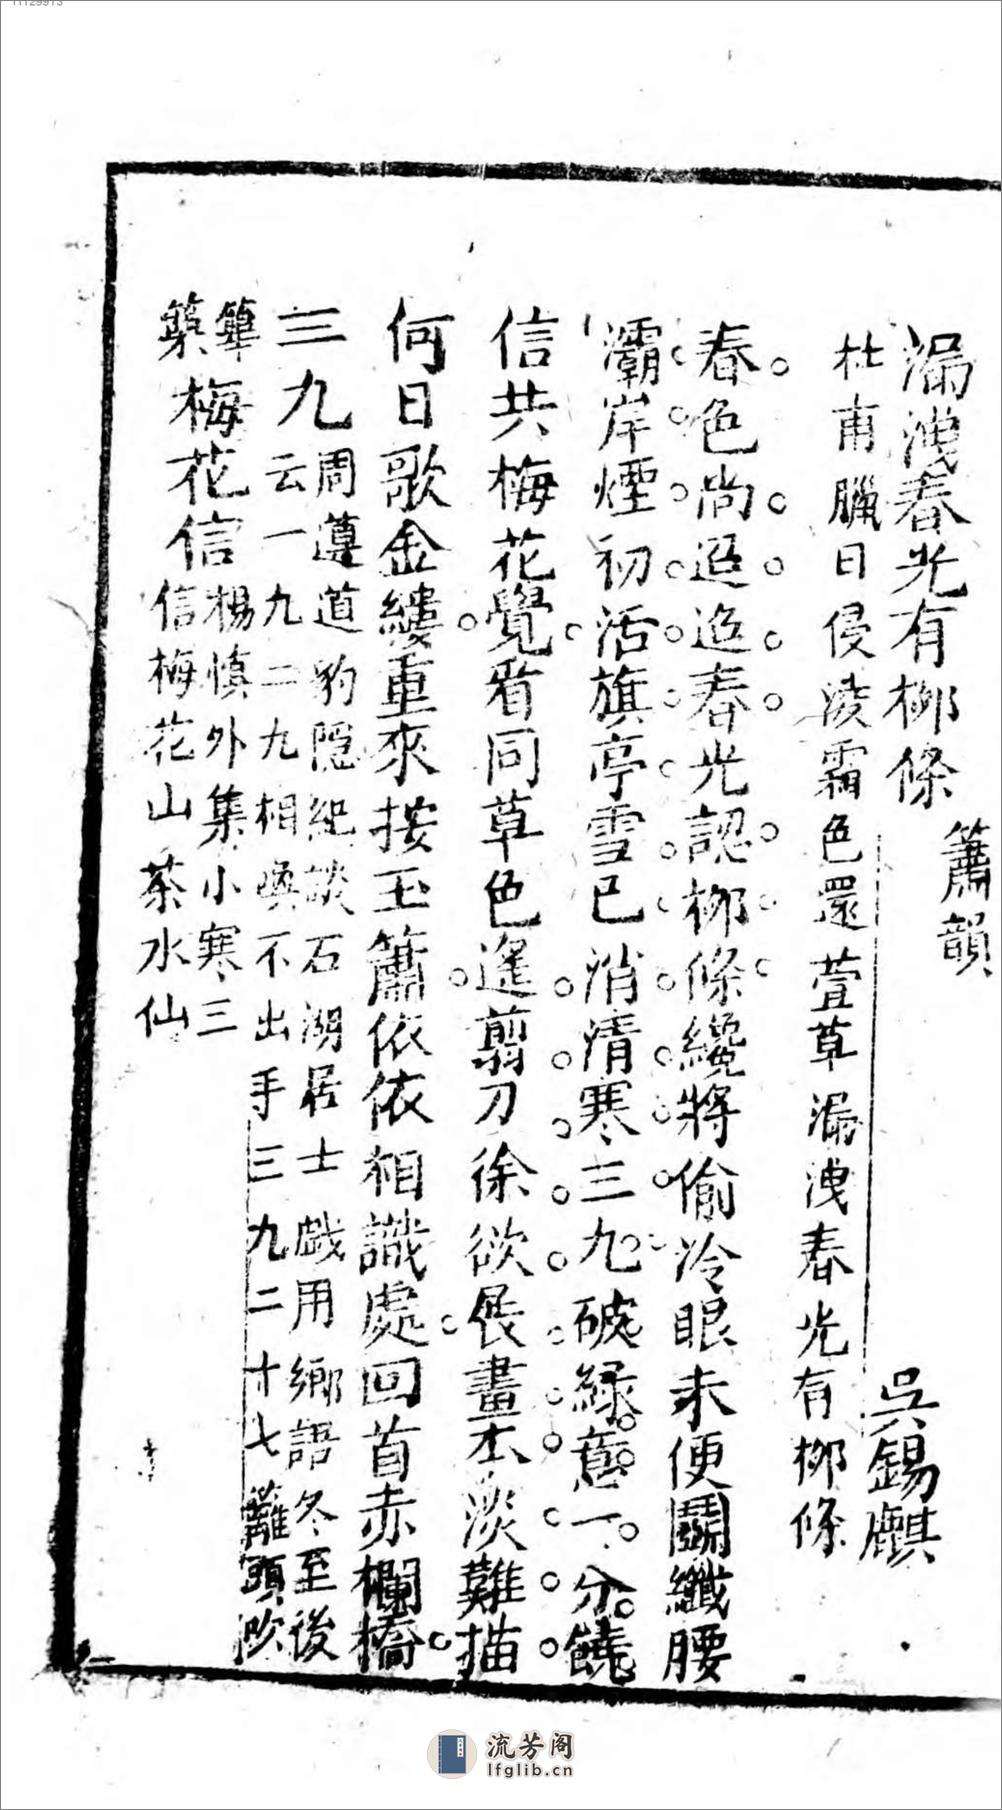 漏洩春光有柳條
簫韻
吳錫麒
杜甫臘日侵凌霜色還萱草漏洩春光有柳條
春色尚迢迢春光認柳條纔將偷冷眼未便鬬纖腰
灞岸煙初活旗亭雪已消清寒三九破綠意一分饒
信共梅花覺看同草色遙剪刀徐欲展畫本淡難描
何日歌金縷重來按玉簫依依相識處回首赤欄橋
三九
周遵道豹隱紀談石湖居士戯用鄉語冬至後
云一九二九相喚不出手三九二十七籬頭吹
篳
篥
梅花信
楊慎外集小寒三
信梅花山茶水仙
流芳阁
lfglib.cn